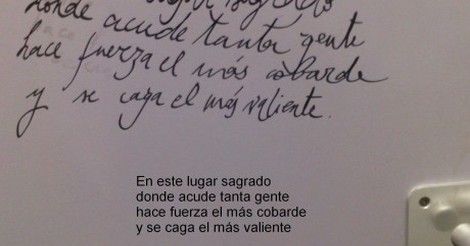 lugar sagrado
donde acude tanta gente
hace fuerza el más cobarde
y se caga el más valiente.
En este lugar sagrado
donde acude tanta gente
hace fuerza el más cobarde
y se caga el más valiente